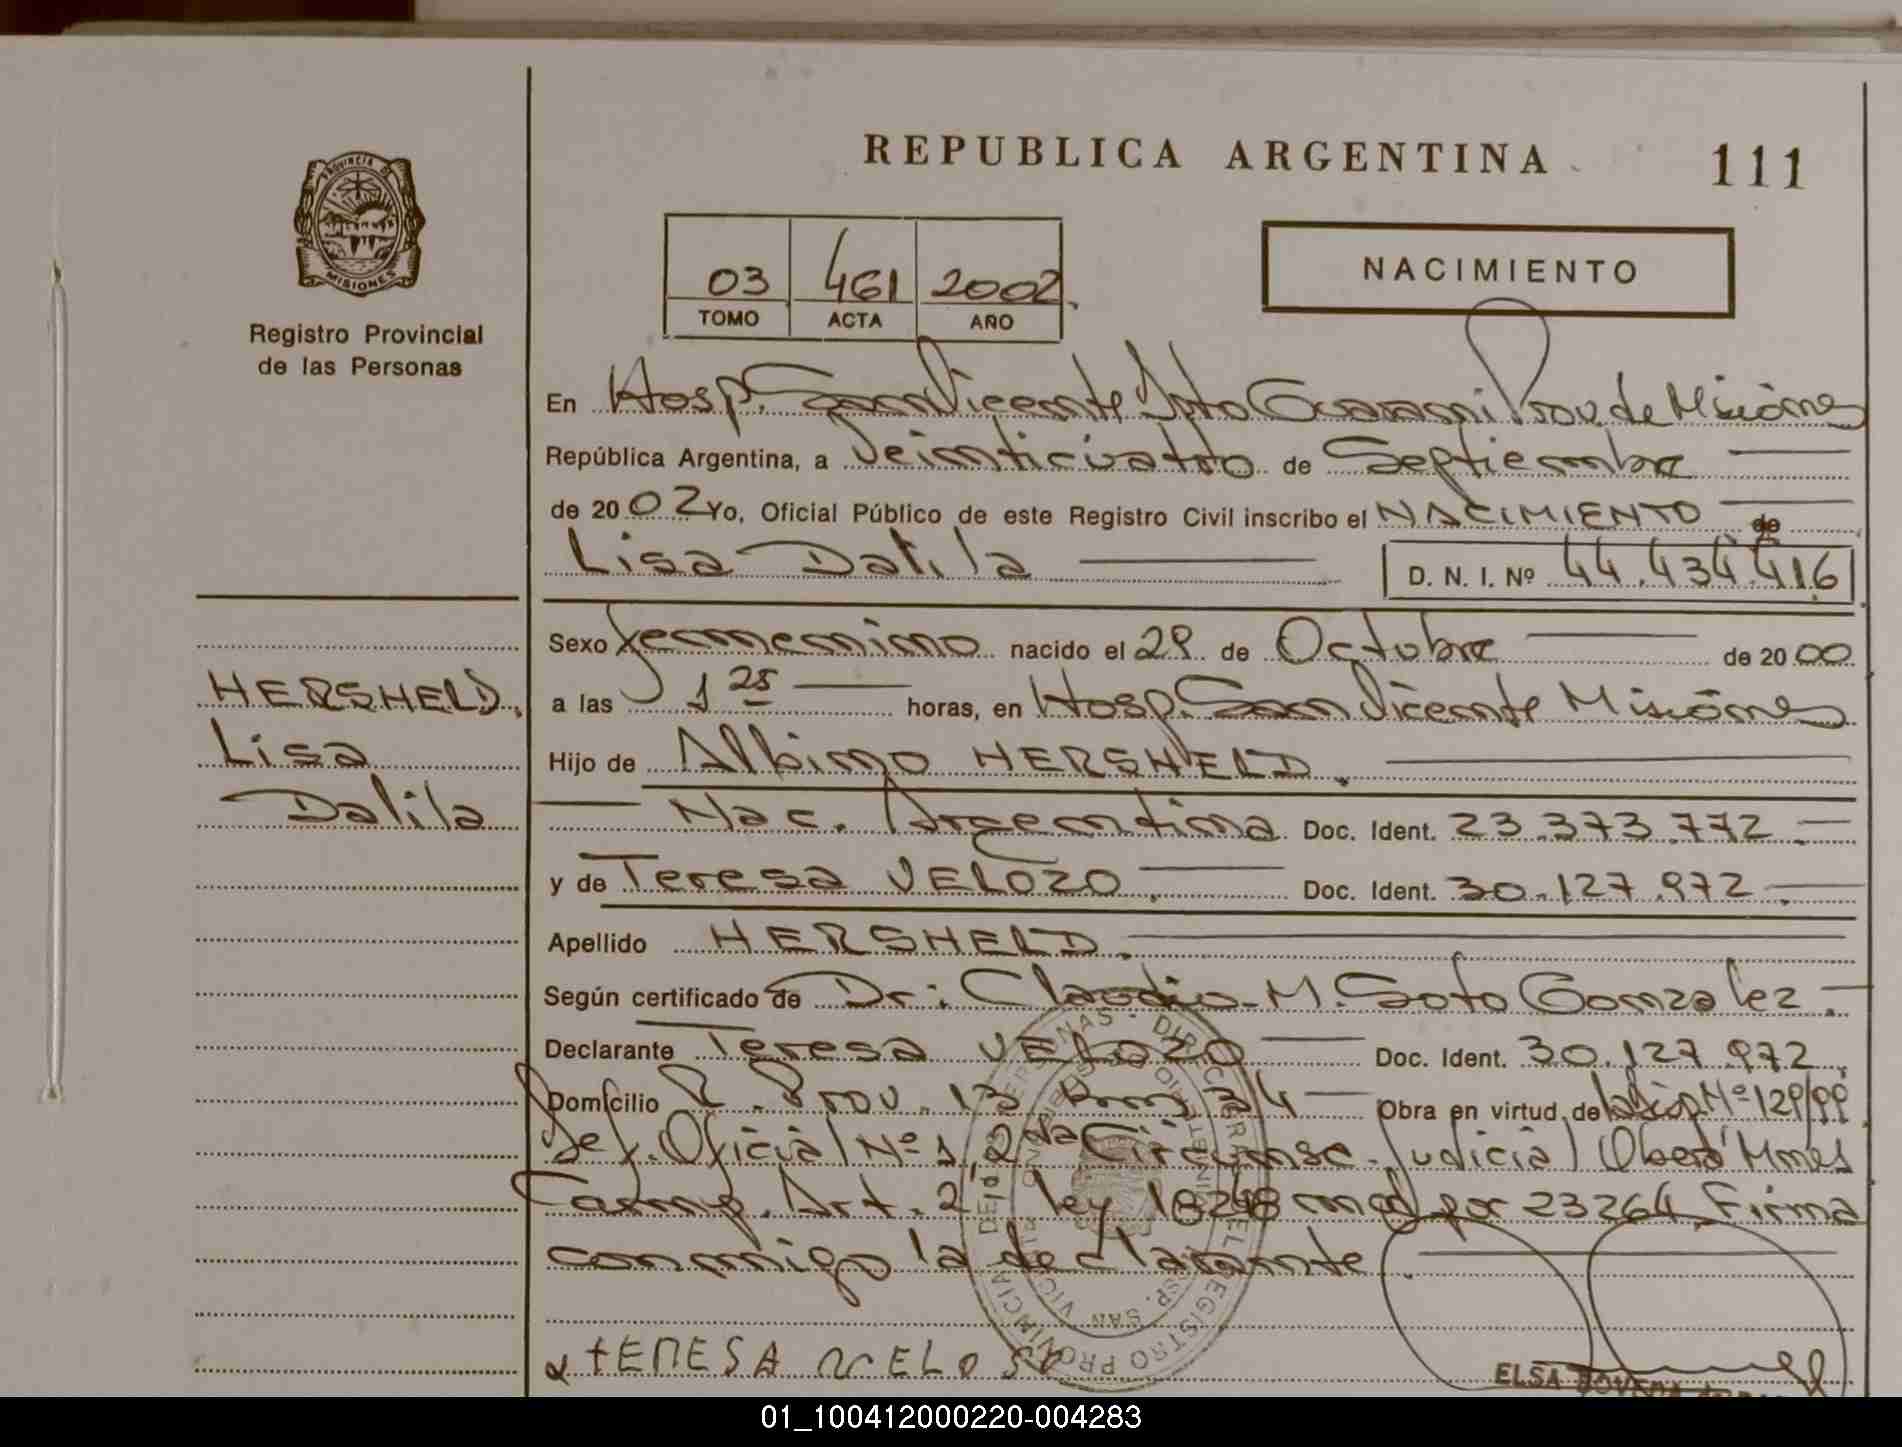 REPUBLICA ARGENTINA 111
PROVINCIA DE
MISIONES
Registro Provincial
de las Personas
03 461 2002
TOMO ACTA AÑO
NACIMIENTO
En Hosp. San Vicente Dpto Guarani Prov. de Misiones
República Argentina, a Veinticuatro de Septiembre
de 2002 Yo, Oficial Público de este Registro Civil inscribo el NACIMIENTO de
Lisa Dalila D. N. I. Nº 44.434.416
Sexo femenino nacido el 29 de Octubre de 2000
HERSHELD,
Lisa
Dalila
a las 1 25 horas, en Hosp. San Vicente Misiones
Hijo de Albino HERSHELD.
Nac. Argentina Doc. Ident. 23.373.772
y de Teresa VELOZO. Doc. Ident. 30.127.972
Apellido HERSHELD.
Según certificado de Dr: Claudio M. Soto Gonzalez.
Declarante Teresa VELOZO Doc. Ident. 30.127.972
Domicilio R. Prov. 13 km 34 Obra en virtud de Nº 129/99
Def. Oficial Nº 1, 2da Circunsc. Judicial Oberá Mnes
Art. 2 ley 18248 mod por 23264 Firma
conmigo la declarante
TERESA VELOSO
ELSA
01_100412000220-004283